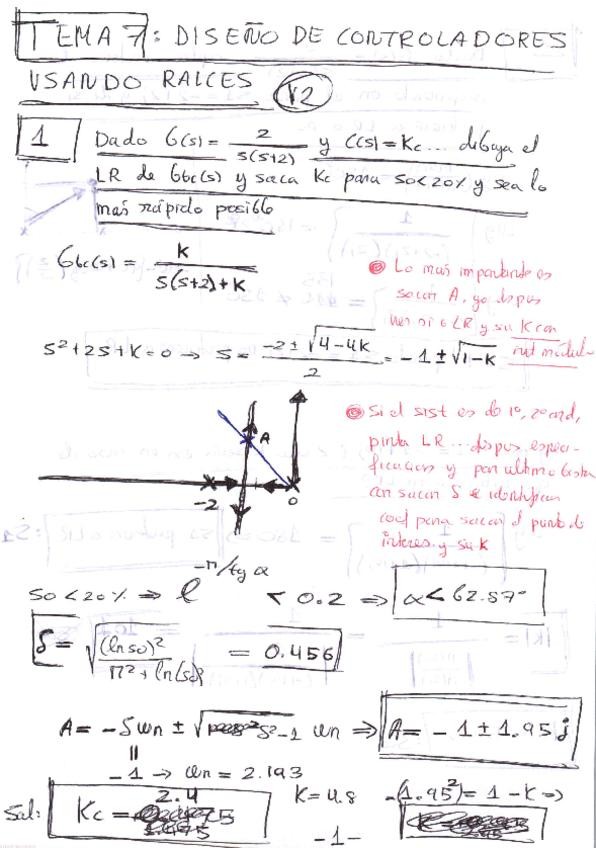 TEMA 7: DISEÑO DE CONTROLADORES
USANDO RAICES V2
1 Dado G(s) = 2 / s(s+2) y C(s) = Kc ... dibuja el
LR de Gbc(s) y saca Kc para SO<20% y sea lo
mas rápido posible
Gbc(s) = K / s(s+2)+K
Lo mas importante es
sacar A, ya despues
si LR y su K con
s²+2s+k=0 → s = -2 ± √4-4k / 2 = -1 ± √1-k
Si el sist es de 1º, 2º ord,
pinta LR ... despues especi-
ficaciones y por ultimo basta
con sacar S e identifican
coef para sacar el punto de
interes y su K
A
-2 0
SO < 20% ⇒ e^(-π/tg α) < 0.2 ⇒ α < 62.87º
δ = √(ln so)² / π² + ln(so)² = 0.456
A = -δωn ± √δ²-1 ωn ⇒ A = -1 ± 1.95j
=
-1 → ωn = 2.193
Sol: Kc = 2.4 K = 4.8 -(1.95²) = 1-K ⇒
-1-